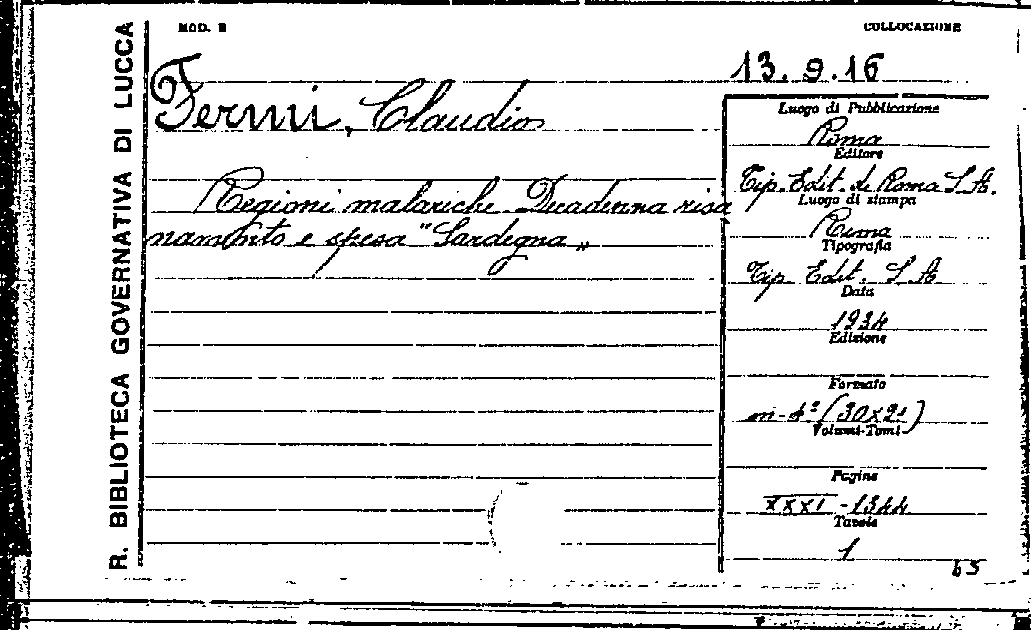 R. BIBLIOTECA GOVERNATIVA DI LUCCA
MOD. B
COLLOCAZIONE
13. 9. 16
Fermi, Claudio
Regioni malariche. Decadenza risa
namento e spesa "Sardegna„
Luogo di Pubblicazione
Roma
Editore
Tip. Edit. di Roma S. A.
Luogo di stampa
Roma
Tipografia
Tip. Edit. S. A.
Data
1934
Edizione
Formato
in-4° (30x21)
Volumi-Tomi
Pagine
XXXI - 1344
Tavole
1
65